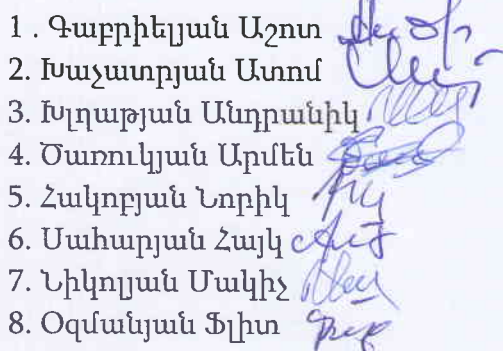 1 . Գաբրիելյան Աշոտ
2. Խաչատրյան Ատոմ
3. Խլղաթյան Անդրանիկ
4. Ծառուկյան Արմեն
5. Հակոբյան Նորիկ
6. Սահարյան Հայկ
7. Նիկոլյան Մակիչ
8. Օզմանյան Ֆլիտ